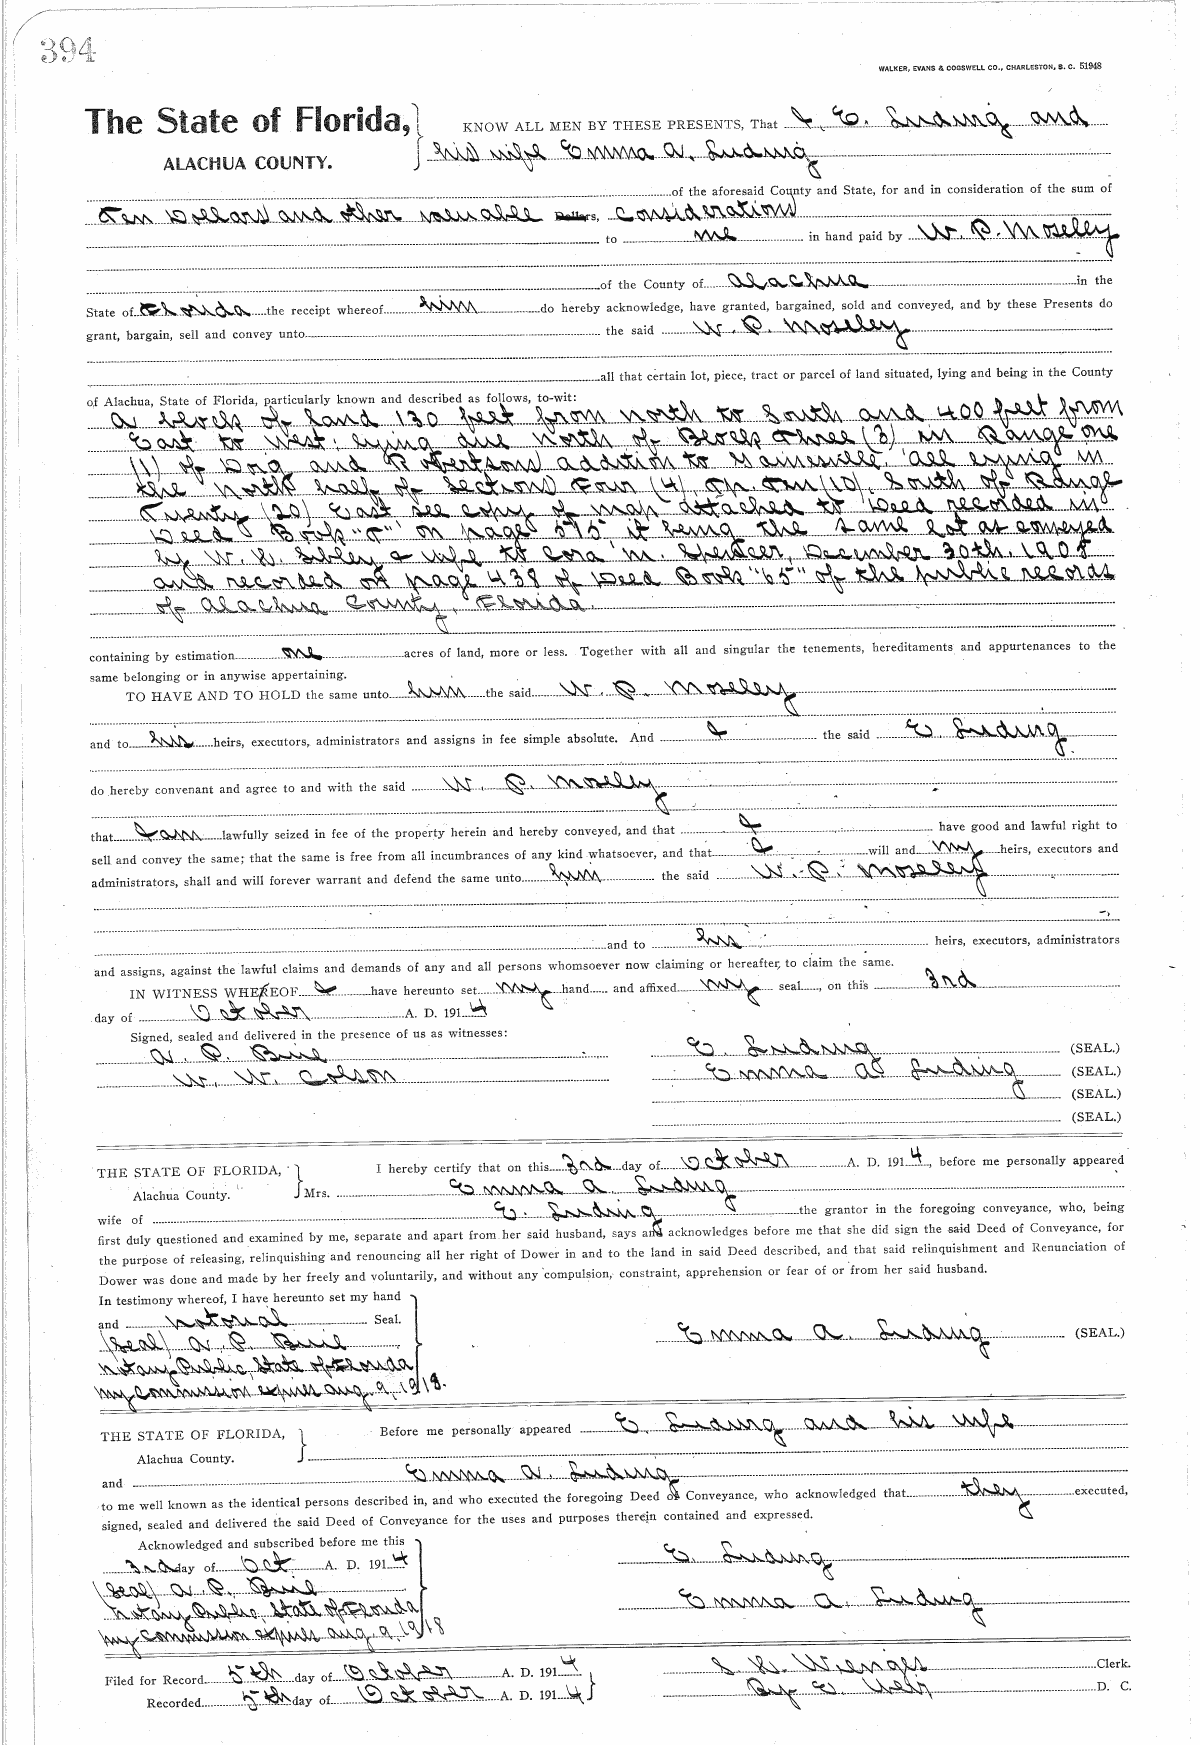 394
WALKER, EVANS & COGSWELL CO., CHARLESTON, S. C. 51948
The State of Florida, KNOW ALL MEN BY THESE PRESENTS, That I, E. Luding and
ALACHUA COUNTY. his wife Emma A. Luding
of the aforesaid County and State, for and in consideration of the sum of
Ten Dollars and other valuable Dollars, Considerations
to me in hand paid by W. P. Moseley
of the County of Alachua in the
State of Florida the receipt whereof him do hereby acknowledge, have granted, bargained, sold and conveyed, and by these Presents do
grant, bargain, sell and convey unto the said W. P. Moseley
all that certain lot, piece, tract or parcel of land situated, lying and being in the County
of Alachua, State of Florida, particularly known and described as follows, to-wit:
A block of land 130 feet from north to South and 400 feet from
East to West, lying due north of Block three (3) in Range one
(1) of Doig and Robertsons addition to Gainesville, all lying in
the north half of Section Four (4), Tp. Ten (10), South of Range
Twenty (20) East see copy of map attached to Deed recorded in
Deed Book on page 575 it being the same lot as conveyed
by W. H. Sibley & wife to Cora M. Spencer, December 30th, 1908
and recorded on page 438 of Deed Book "65" of the public records
of Alachua County, Florida.
containing by estimation one acres of land, more or less. Together with all and singular the tenements, hereditaments and appurtenances to the
same belonging or in anywise appertaining.
TO HAVE AND TO HOLD the same unto him the said W. P. Moseley
and to his heirs, executors, administrators and assigns in fee simple absolute. And I the said E. Luding
do hereby convenant and agree to and with the said W. P. Moseley
that I am lawfully seized in fee of the property herein and hereby conveyed, and that I have good and lawful right to
sell and convey the same; that the same is free from all incumbrances of any kind whatsoever, and that I will and my heirs, executors and
administrators, shall and will forever warrant and defend the same unto him the said W. P. Moseley
and to his heirs, executors, administrators
and assigns, against the lawful claims and demands of any and all persons whomsoever now claiming or hereafter, to claim the same.
IN WITNESS WHEREOF I have hereunto set my hand and affixed my seal, on this 3rd
day of October A. D. 1914
Signed, sealed and delivered in the presence of us as witnesses:
A. P. Buil E. Luding (SEAL.)
W. W. Colson Emma A Luding (SEAL.)
(SEAL.)
(SEAL.)
THE STATE OF FLORIDA, I hereby certify that on this 3rd day of October A. D. 1914, before me personally appeared
Alachua County. Mrs. Emma A. Luding
wife of E. Luding the grantor in the foregoing conveyance, who, being
first duly questioned and examined by me, separate and apart from her said husband, says and acknowledges before me that she did sign the said Deed of Conveyance, for
the purpose of releasing, relinquishing and renouncing all her right of Dower in and to the land in said Deed described, and that said relinquishment and Renunciation of
Dower was done and made by her freely and voluntarily, and without any compulsion, constraint, apprehension or fear of or from her said husband.
In testimony whereof, I have hereunto set my hand
and notorial Seal.
(Seal) A. P. Buil Emma A. Luding (SEAL.)
Notary Public, State of Florida
My Commission expires Aug. 9, 1918.
THE STATE OF FLORIDA, Before me personally appeared E. Luding and his wife
Alachua County.
and Emma A. Luding
to me well known as the identical persons described in, and who executed the foregoing Deed of Conveyance, who acknowledged that they executed,
signed, sealed and delivered the said Deed of Conveyance for the uses and purposes therein contained and expressed.
Acknowledged and subscribed before me this
3rd day of Oct A. D. 1914 E. Luding
(Seal) A. P. Buil
Notary Public, State of Florida Emma A. Luding
My Commission expires Aug. 9, 1918
Filed for Record 5th day of October A. D. 1914 S. H. Wienges Clerk.
Recorded 5th day of October A. D. 1914 By E. Weir D. C.